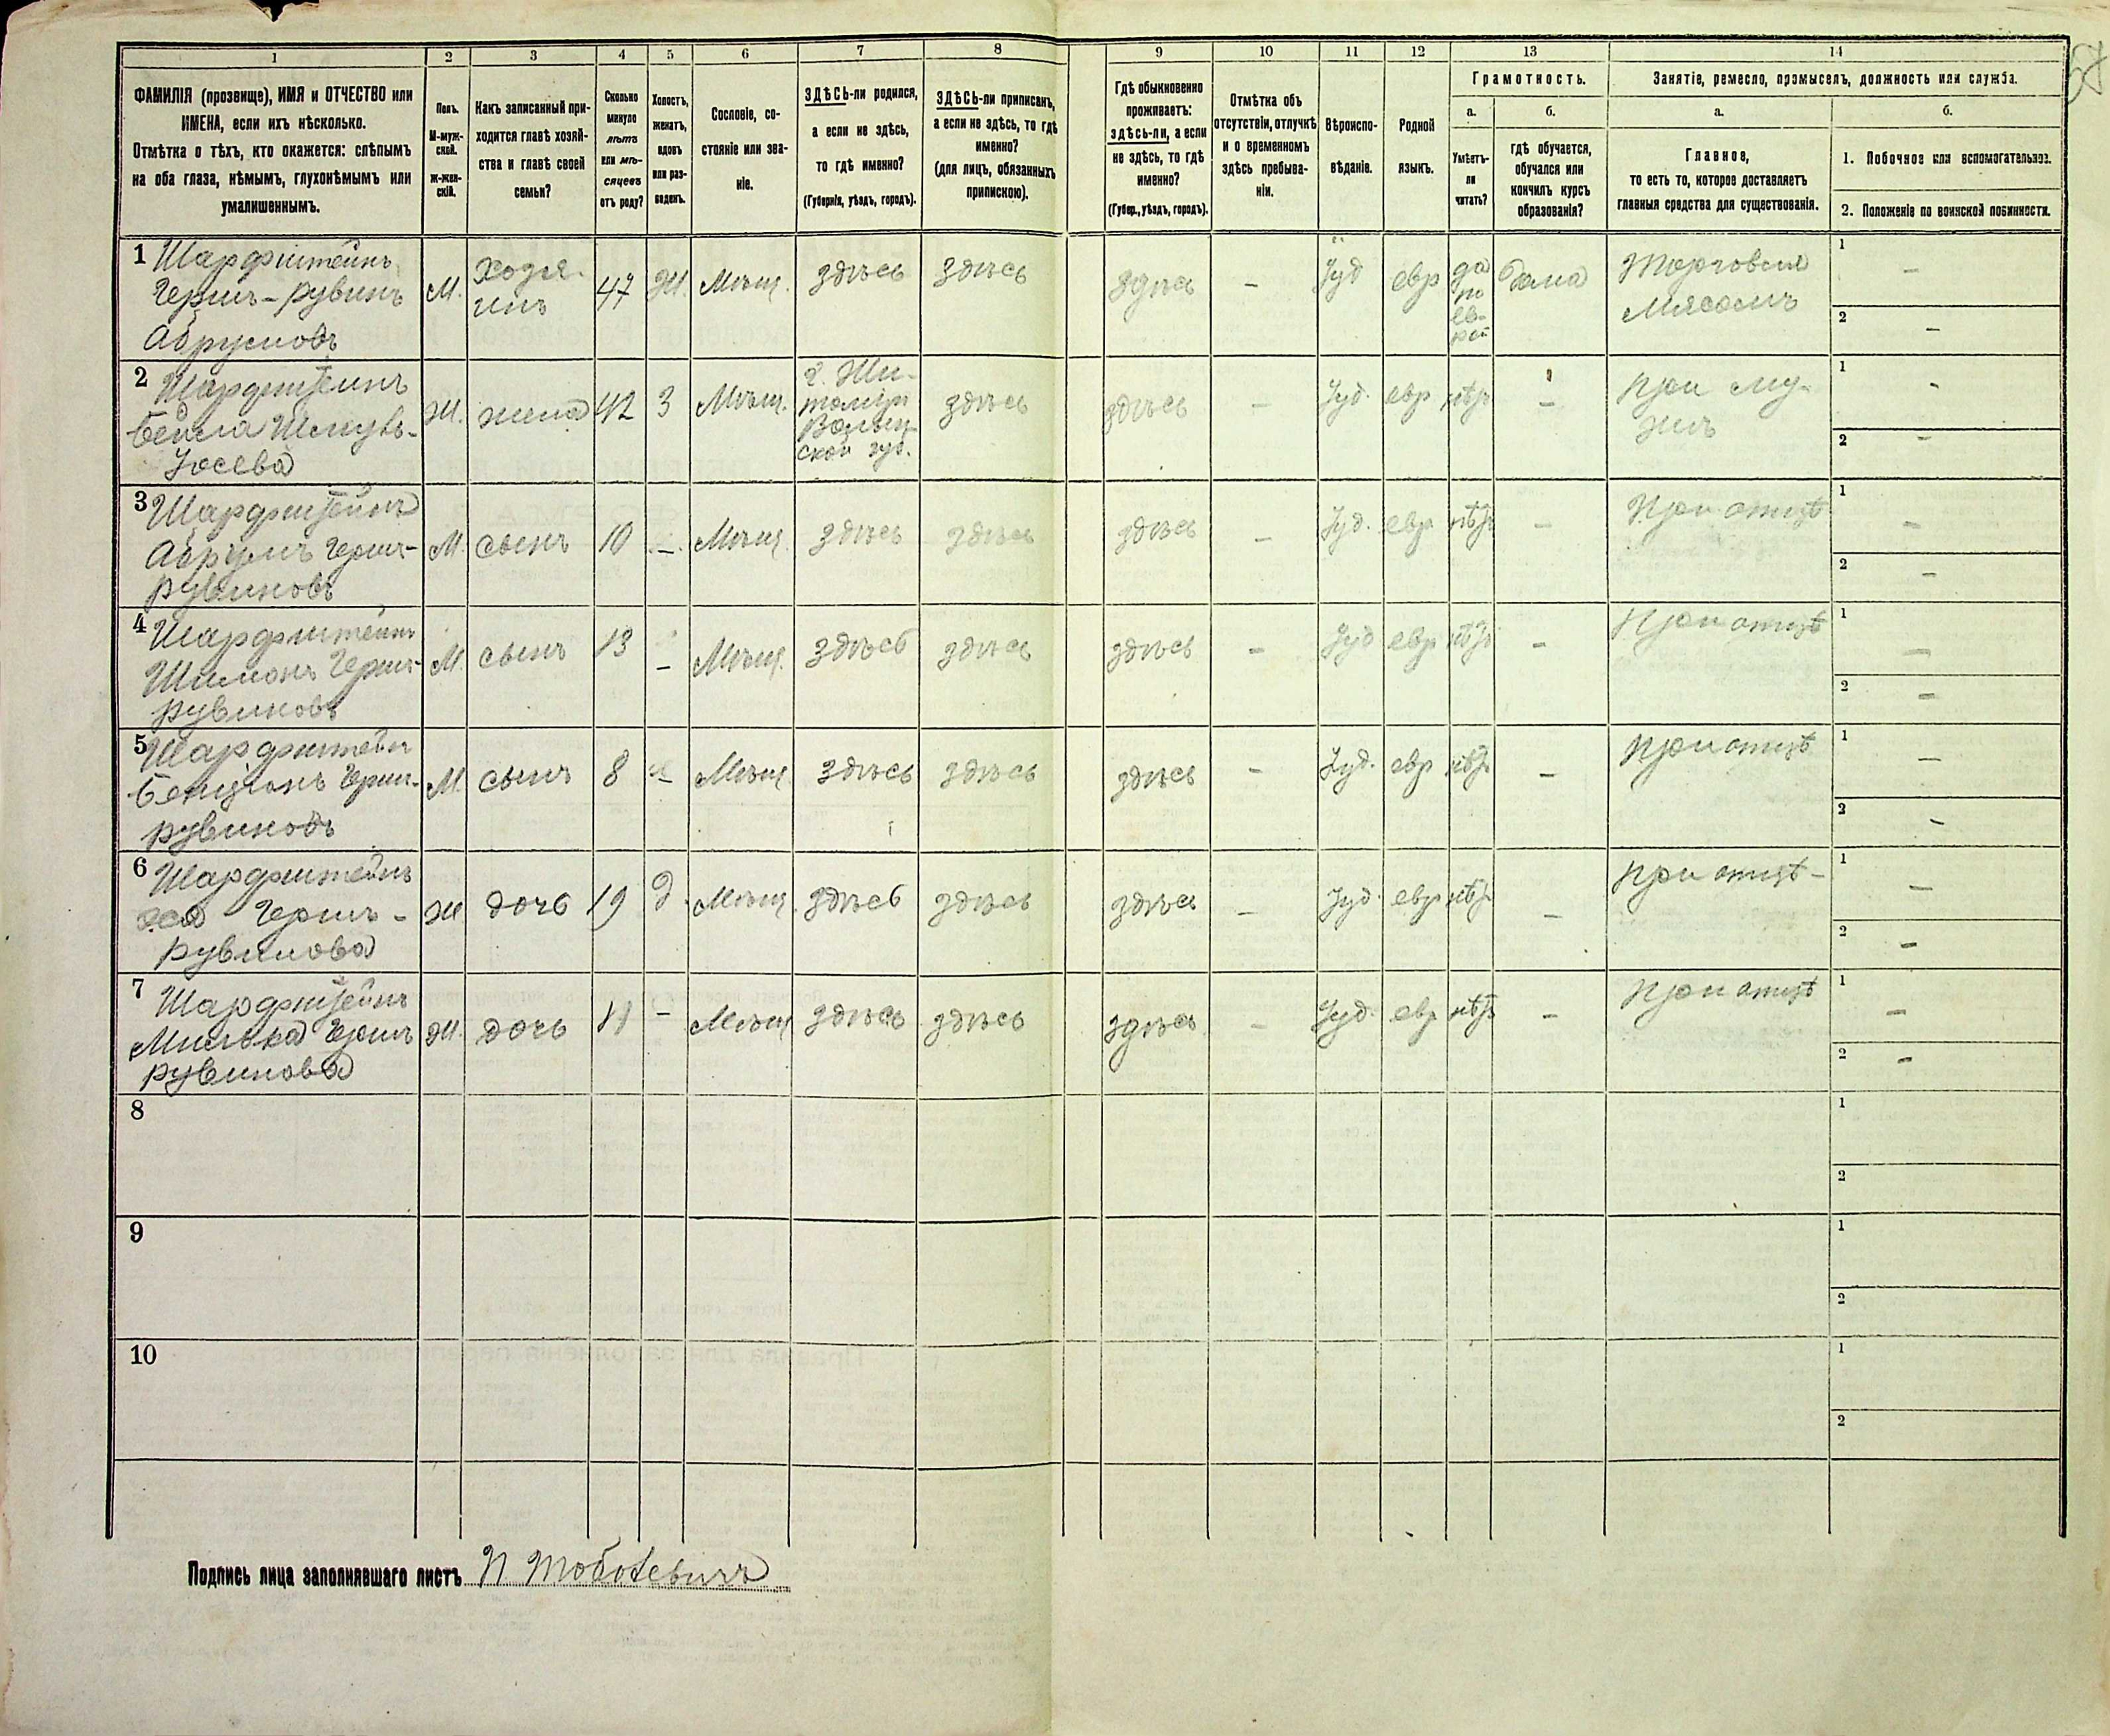 1 2 3 4 5 6 7 8 9 10 11 12 13 14
ФАМИЛІЯ (прозвище), ИМЯ и ОТЧЕСТВО или
ИМЕНА, если ихъ нѣсколько.
Отмѣтка о тѣхъ, кто окажется: слѣпымъ
на оба глаза, нѣмымъ, глухонѣмымъ или
умалишеннымъ.
Полъ.
М-муж-
ской.
Ж-жен-
скій.
Какъ записанный при-
ходится главѣ хозяй-
ства и главѣ своей
семьи?
Сколько
минуло
лѣтъ
или мѣ-
сяцевъ
отъ роду?
Холостъ,
женатъ,
вдовъ
или раз-
веденъ.
Сословіе, со-
стояніе или зва-
ніе.
ЗДѢСЬ-ли родился,
а если не здѣсь,
то гдѣ именно?
(Губернія, уѣздъ, городъ).
ЗДѢСЬ-ли приписанъ,
а если не здѣсь, то гдѣ
именно?
(для лицъ, обязанныхъ
припискою).
Гдѣ обыкновенно
проживаетъ:
здѣсь-ли, а если
не здѣсь, то гдѣ
именно?
(Губер., уѣздъ, городъ).
Отмѣтка объ
отсутствіи, отлучкѣ
и о временномъ
здѣсь пребыва-
ніи.
Вѣроиспо-
вѣданіе.
Родной
языкъ.
Грамотность.
а.
Умѣетъ-
ли
читать?
б.
гдѣ обучается,
обучался или
кончилъ курсъ
образованія?
Занятіе, ремесло, промыселъ, должность или служба.
а.
Главное,
то есть то, которое доставляетъ
главныя средства для существованія.
б.
1. Побочное или вспомогательное.
2. Положеніе по воинской повинности.
1 Шарфштейнъ
Гершъ-Рувинъ
Абрумовъ
М.
Хозя-
инъ
47
Ж.
Мѣщ.
здѣсь
здѣсь
здѣсь
–
Іуд
евр
да
по
ев-
рей
дома
Торговля
Мясомъ
1 –
2 –
2 Шарфштейнъ
Бейла Шмуль-
Іосева
Ж.
жена
42
З
Мѣщ.
г. Жи-
томіръ
Волын-
ской губ.
здѣсь
здѣсь
–
Іуд.
евр
нѣтъ
–
при му-
жѣ
1 -
2 –
3 Шарфштейнъ
Абрумъ Гершъ-
Рувиновъ
М.
сынъ
10
–
Мѣщ.
здѣсь
здѣсь
здѣсь
–
Іуд.
евр
нѣтъ
–
При отцѣ
1 –
2 –
4 Шарфштейнъ
Шимонъ Гершъ-
Рувиновъ
М.
сынъ
13
–
Мѣщ.
здѣсь
здѣсь
здѣсь
–
Іуд
евр
нѣтъ
–
При отцѣ
1 –
2 –
5 Шарфштейнъ
Бенціонъ Гершъ-
Рувиновъ
М.
сынъ
8
–
Мѣщ.
здѣсь
здѣсь
здѣсь
–
Іуд.
евр
нѣтъ
–
При отцѣ
1 –
2 –
6 Шарфштейнъ
Гершъ-
Рувинова
Ж
дочь
19
Д
Мѣщ.
здѣсь
здѣсь
здѣсь
–
Іуд.
евр
нѣтъ
–
При отцѣ
1 –
2 –
7 Шарфштейнъ
Гершъ
Рувинова
Ж.
дочь
11
–
Мѣщ
здѣсь
здѣсь
здѣсь
–
Іуд.
евр
нѣтъ
–
При отцѣ
1 –
2 –
8
1
2
9
1
2
10
1
2
Подпись лица заполнявшаго листъ